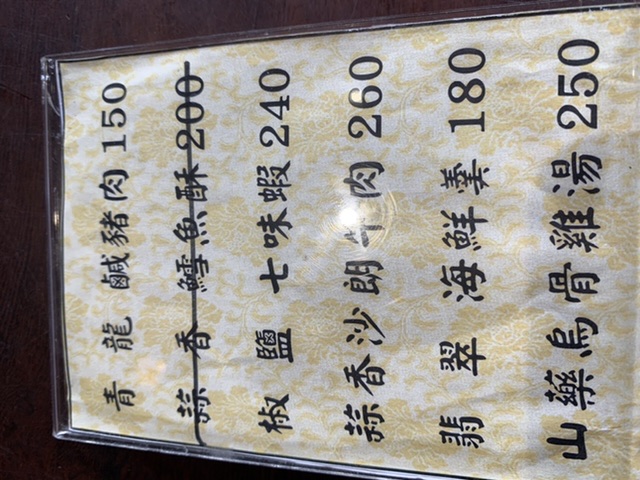 青龍鹹豬肉150
蒜香鱈魚酥200
椒鹽七味蝦240
蒜香沙朗牛肉260
翡翠海鮮羹180
山藥烏骨雞湯250